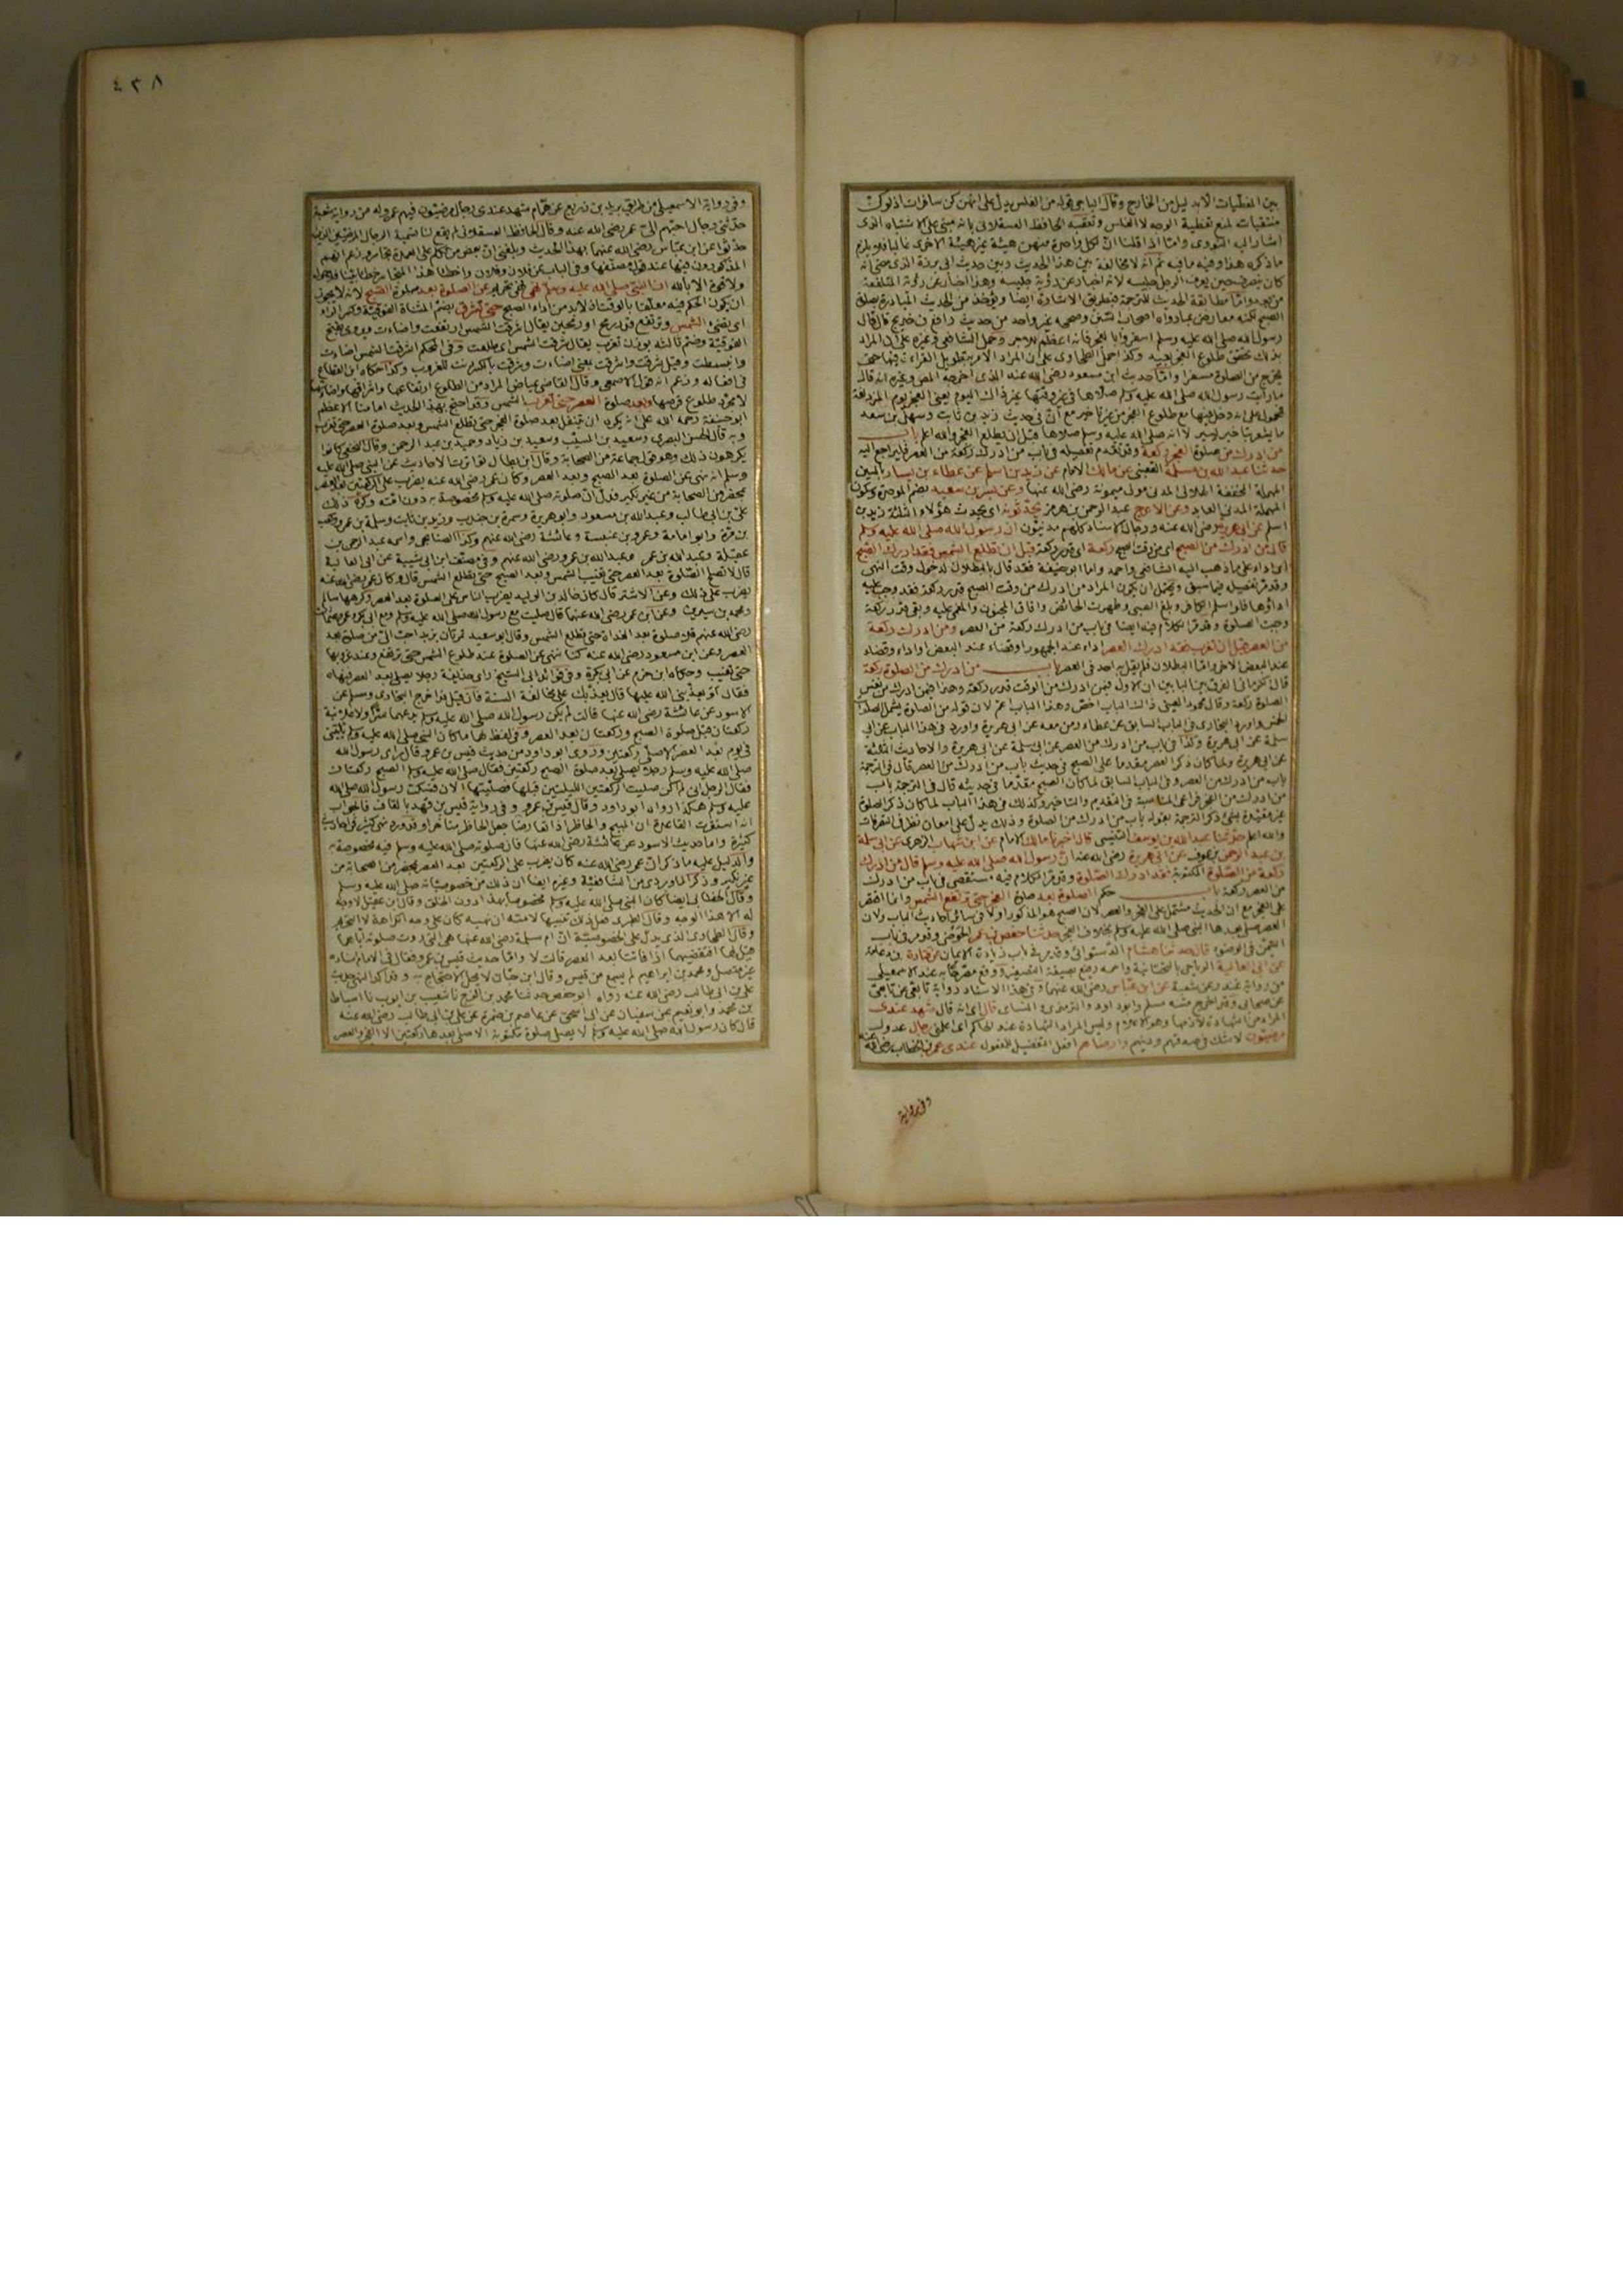 بين المغطيات الا بدليل من الخارج وقال الباجي قوله من الغلس يدل على انهن كن سافرات اذ لو كن
متنقبات لمنع تغطية الوجه لا الغلس وتعقبه الحافظ العسقلاني بانه مبني على الاشتباه الذي
اشار اليه النووي واما اذا قلنا ان لكل واحدة منهن هيئة غير هيئة الاخرى غالبا فلا يلزم
ما ذكره هذا وفيه ما فيه ثم انه لا مخالفة بين هذا الحديث وبين حديث ابي برزة الذي مضى انه
كان ينصرف حين يعرف الرجل جليسه لانه اخبار عن رؤية جليسه وهذا اخبار عن رؤية المتلفعة
من بعد واما مطابقة الحديث للترجمة فبطريق الاشارة ايضا ويؤخذ من الحديث المبادرة بصلوة
الصبح لكنه معارض بما رواه اصحاب السنن وصححه غير واحد من حديث رافع بن خديج قال قال
رسول الله صلى الله عليه وسلم اسفروا بالفجر فانه اعظم للاجر وحمل الشافعي وغيره على ان المراد
بذلك تحقق طلوع الفجر وكذا حمل الطحاوي على ان المراد الامر بتطويل القراءة فيها حتى
يخرج من الصلوة مسفرا واما حديث ابن مسعود رضي الله عنه الذي اخرجه المص وغيره انه قال
ما رأيت رسول الله صلى الله عليه وسلم صلاها في غير وقتها غير ذلك اليوم يعني الفجر يوم المزدلفة
فمحمول على انه دخل فيها مع طلوع الفجر من غير تاخير مع ان في حديث زيد بن ثابت وسهل بن سعد
ما يشعر بتاخير يسير لا انه صلى الله عليه وسلم صلاها قبل ان يطلع الفجر والله اعلم باب
من ادرك من صلوة الفجر ركعة وقد تقدم تفصيله في باب من ادرك ركعة من العصر فليراجع اليه
حدثنا عبد الله بن مسلمة القعنبي عن مالك الامام عن زيد بن اسلم عن عطاء بن يسار بالسين
المهملة المخففة الهلالي المدني مولى ميمونة رضي الله عنها وعن بسر بن سعيد بضم الموحدة وسكون
المهملة المدني العابد وعن الاعرج عبد الرحمن بن هرمز يحدثونه اي يحدث هؤلاء الثلثة زيد بن
اسلم عن ابي هريرة رضي الله عنه ورجال الاسناد كلهم مدنيون ان رسول الله صلى الله عليه وسلم
قال من ادرك من الصبح اي من وقت الصبح ركعة اي قدر ركعة قبل ان تطلع الشمس فقد ادرك الصبح
اي اداء على ما ذهب اليه الشافعي واحمد واما ابو حنيفة فقد قال بالبطلان لدخول وقت النهي
وقد مر تفصيله فيما سبق ويحتمل ان يكون المراد من ادرك من وقت الصبح قدر ركعة فقد وجب عليه
اداؤها فلو اسلم الكافر وبلغ الصبي وطهرت الحائض وافاق المجنون والمغمى عليه وبقي قدر ركعة
وجبت الصلوة وقد مر الكلام فيه ايضا في باب من ادرك ركعة من العصر ومن ادرك ركعة
من العصر قبل ان تغرب فقد ادرك العصر اداء عند الجمهور او قضاء عند البعض او اداء وقضاء
عند البعض الاخر واما البطلان فلم يقل به احد في العصر باب من ادرك من الصلوة ركعة
قال الكرماني الفرق بين البابين ان الاول فيمن ادرك من الوقت قدر ركعة وهذا فيمن ادرك من نفس
الصلوة ركعة وقال محمود العيني ذلك الباب اخص وهذا الباب اعم لان قوله من الصلوة يشمل الصلوات
الخمس واورد البخاري في الباب السابق عن عطاء ومن معه عن ابي هريرة واورد في هذا الباب عن ابي
سلمة عن ابي هريرة وكذا في باب من ادرك من العصر عن ابي سلمة عن ابي هريرة والاحاديث الثلثة
عن ابي هريرة ولما كان ذكر العصر مقدما على الصبح في حديث باب من ادرك من العصر قال في الترجمة
باب من ادرك من العصر وفي الباب السابق لما كان الصبح مقدما في حديثه قال في الترجمة باب
من ادرك من الفجر فراعى المناسبة في التقديم والتاخير وكذلك في هذا الباب لما كان ذكر الصلوة
غير مقيدة بشئ ذكر الترجمة بقوله باب من ادرك من الصلوة وذلك يدل على امعان نظر في التصرفات
والله اعلم حدثنا عبد الله بن يوسف التنيسي قال اخبرنا مالك الامام عن ابن شهاب الزهري عن ابي سلمة
بن عبد الرحمن بن عوف عن ابي هريرة رضي الله عنه ان رسول الله صلى الله عليه وسلم قال من ادرك
ركعة من الصلوة المكتوبة فقد ادرك الصلوة وقد مر الكلام فيه مستقصى في باب من ادرك
من العصر ركعة باب حكم الصلوة بعد صلوة الفجر حتى ترتفع الشمس وانما اقتصر
على الفجر مع ان الحديث مشتمل على الفجر والعصر لان الصبح هو المذكور اولا في سائر احاديث الباب ولان
العصر صلى بعدها النبي صلى الله عليه وسلم بخلاف الفجر حدثنا حفص بن عمر الحوضي وقد مر في باب
التيمن في الوضوء قال حدثنا هشام الدستوائي وقد مر في باب زيادة الايمان عن قتادة بن دعامة
عن ابي العالية الرياحي بالتحتانية واسمه رفيع بصيغة التصغير ووقع مصرحا به عند الاسمعيلي
من رواية غندر عن شعبة عن ابن عباس رضي الله عنهما وفي هذا الاسناد رواية تابعي عن تابعي
عن صحابي وقد اخرج متنه مسلم وابو داود والترمذي والنسائي قال اي انه قال شهد عندي
المراد من الشهادة لازمها وهو الاعلام وليس المراد الشهادة عند الحاكم اي اعلمني رجال عدول
مرضيون لا شك في صدقهم ودينهم وارضاهم افعل التفضيل للمفعول عندي عمر بن الخطاب رضي الله عنه
وفي رواية
٤٣٨
وفي رواية الاسمعيلي من طريق يزيد بن زريع عن همام شهد عندي رجال مرضيون فيهم عمر وله من رواية شعبة
حدثني رجال احبهم الي عمر رضي الله عنه وقال الحافظ العسقلاني لم يقع لنا تسمية الرجال المرضيين الذين
حدثوا عن ابن عباس رضي الله عنهما بهذا الحديث وبلغني ان بعض من تكلم على العمدة تجاسر وزعم انهم
المذكورون فيها عند قول مصنفها وفي الباب عن فلان وفلان واخطا هذا المتجاسر خطأ بينا فلا حول
ولا قوة الا بالله ان النبي صلى الله عليه وسلم نهى نهي تحريم عن الصلوة بعد صلوة الصبح لانه لا يجوز
ان يكون الحكم فيه معلقا بالوقت اذ لا بد من اداء الصبح حتى تشرق بضم المثناة الفوقية وكسر الراء
اي تضيء الشمس وترتفع قدر رمح او رمحين يقال اشرقت الشمس ارتفعت واضاءت ويروى بفتح
الفوقية وضم ثالثه بوزن تغرب يقال شرقت الشمس اي طلعت وفي المحكم اشرقت الشمس اضاءت
وانبسطت وقيل شرقت واشرقت بمعنى اضاءت وشرقت بالكسر دنت للغروب وكذا حكاه ابن القطاع
في افعاله وزعم انه قول الاصمعي وقال القاضي عياض المراد من الطلوع ارتفاعها واشراقها واضاءتها
لا مجرد طلوع قرصها وبعد صلوة العصر حتى تغرب الشمس وقد احتج بهذا الحديث امامنا الاعظم
ابو حنيفة رحمه الله على انه يكره ان يتنفل بعد صلوة الفجر حتى تطلع الشمس وبعد صلوة العصر حتى تغرب
وبه قال الحسن البصري وسعيد بن المسيب وسعيد بن زياد وحميد بن عبد الرحمن وقال النخعي كانوا
يكرهون ذلك وهو قول جماعة من الصحابة وقال ابن بطال تواترت الاحاديث عن النبي صلى الله عليه
وسلم انه نهى عن الصلوة بعد الصبح وبعد العصر وكان عمر رضي الله عنه يضرب على الركعتين بعد العصر
بمحضر من الصحابة من غير نكير فدل ان صلوته صلى الله عليه وسلم مخصوصة به دون امته وكره ذلك
علي بن ابي طالب وعبد الله بن مسعود وابو هريرة وسمرة بن جندب وزيد بن ثابت وسلمة بن عمرو وكعب
بن مرة وابو امامة وعمرو بن عنبسة وعائشة رضي الله عنهم وكذا الصنابحي واسمه عبد الرحمن بن
عسيلة وعبد الله بن عمر وعبد الله بن عمرو رضي الله عنهم وفي مصنف ابن ابي شيبة عن ابي العالية
قال لا تصلح الصلوة بعد العصر حتى تغيب الشمس وبعد الصبح حتى تطلع الشمس قال وكان عمر رضي الله عنه
يضرب على ذلك وعن الاشتر قال كان خالد بن الوليد يضرب الناس على الصلوة بعد العصر وكرهها سالم
ومحمد بن سيرين وعن ابن عمر رضي الله عنهما قال صليت مع رسول الله صلى الله عليه وسلم ومع ابي بكر وعمر وعثمان
رضي الله عنهم فلا صلوة بعد الغداة حتى تطلع الشمس وقال ابو سعيد تمرتان بزبد احب الي من صلوة بعد
العصر وعن ابن مسعود رضي الله عنه كنا ننهى عن الصلوة عند طلوع الشمس حتى ترتفع وعند غروبها
حتى تغيب وحكاه ابن حزم عن ابي بكرة وفي فوائد ابي الشيخ راى حذيفة رجلا يصلي بعد العصر فنهاه
فقال أو يعذبني الله عليها قال يعذبك على مخالفة السنة فان قيل قد اخرج البخاري ومسلم عن
الاسود عن عائشة رضي الله عنها قالت لم يكن رسول الله صلى الله عليه وسلم يدعهما سرا ولا علانية
ركعتان قبل صلوة الصبح وركعتان بعد العصر وفي لفظ لهما ما كان النبي صلى الله عليه وسلم ياتيني
في يوم بعد العصر الا صلى ركعتين وروى ابو داود من حديث قيس بن عمرو قال راى رسول الله
صلى الله عليه وسلم رجلا يصلي بعد صلوة الصبح ركعتين فقال صلى الله عليه وسلم الصبح ركعتان
فقال الرجل اني لم اكن صليت الركعتين اللتين قبلها فصليتهما الان فسكت رسول الله صلى الله
عليه وسلم هكذا رواه ابو داود وقال قيس بن عمرو وفي رواية قيس بن قهد بالقاف فالجواب
انه استقرت القاعدة ان المبيح والحاظر اذا تعارضا جعل الحاظر متاخرا وقد ورد نهي كثير في احاديث
كثيرة واما حديث الاسود عن عائشة رضي الله عنها فان صلوته صلى الله عليه وسلم فيه مخصوصة به
والدليل عليه ما ذكر ان عمر رضي الله عنه كان يضرب على الركعتين بعد العصر بمحضر من الصحابة من
غير نكير وذكر الماوردي من الشافعية وغيره ايضا ان ذلك من خصوصياته صلى الله عليه وسلم
وقال الخطابي ايضا كان النبي صلى الله عليه وسلم مخصوصا بهذا دون الخلق وقال ابن عقيل لا وجه
له الا هذا الوجه وقال الطبري فعل ذلك تنبيها لامته ان نهيه كان على وجه الكراهة لا التحريم
وقال الطحاوي الذي يدل على الخصوصية ان ام سلمة رضي الله عنها هي التي روت صلوته اياهما
قيل لها افنقضيهما اذا فاتتا بعد العصر قالت لا واما حديث قيس بن عمرو فقال في الامام اسناده
غير متصل ومحمد بن ابراهيم لم يسمع من قيس وقال ابن حبان لا يحل الاحتجاج به وقد اكد النهي حديث
علي بن ابي طالب رضي الله عنه رواه ابو حفص حدثنا محمد بن الفرج نا شعيب بن ايوب نا اسباط
بن محمد وابو نعيم عن سفيان عن ابي اسحق عن عاصم بن ضمرة عن علي بن ابي طالب رضي الله عنه
قال كان رسول الله صلى الله عليه وسلم لا يصلي صلوة مكتوبة الا صلى بعدها ركعتين الا الفجر والعصر